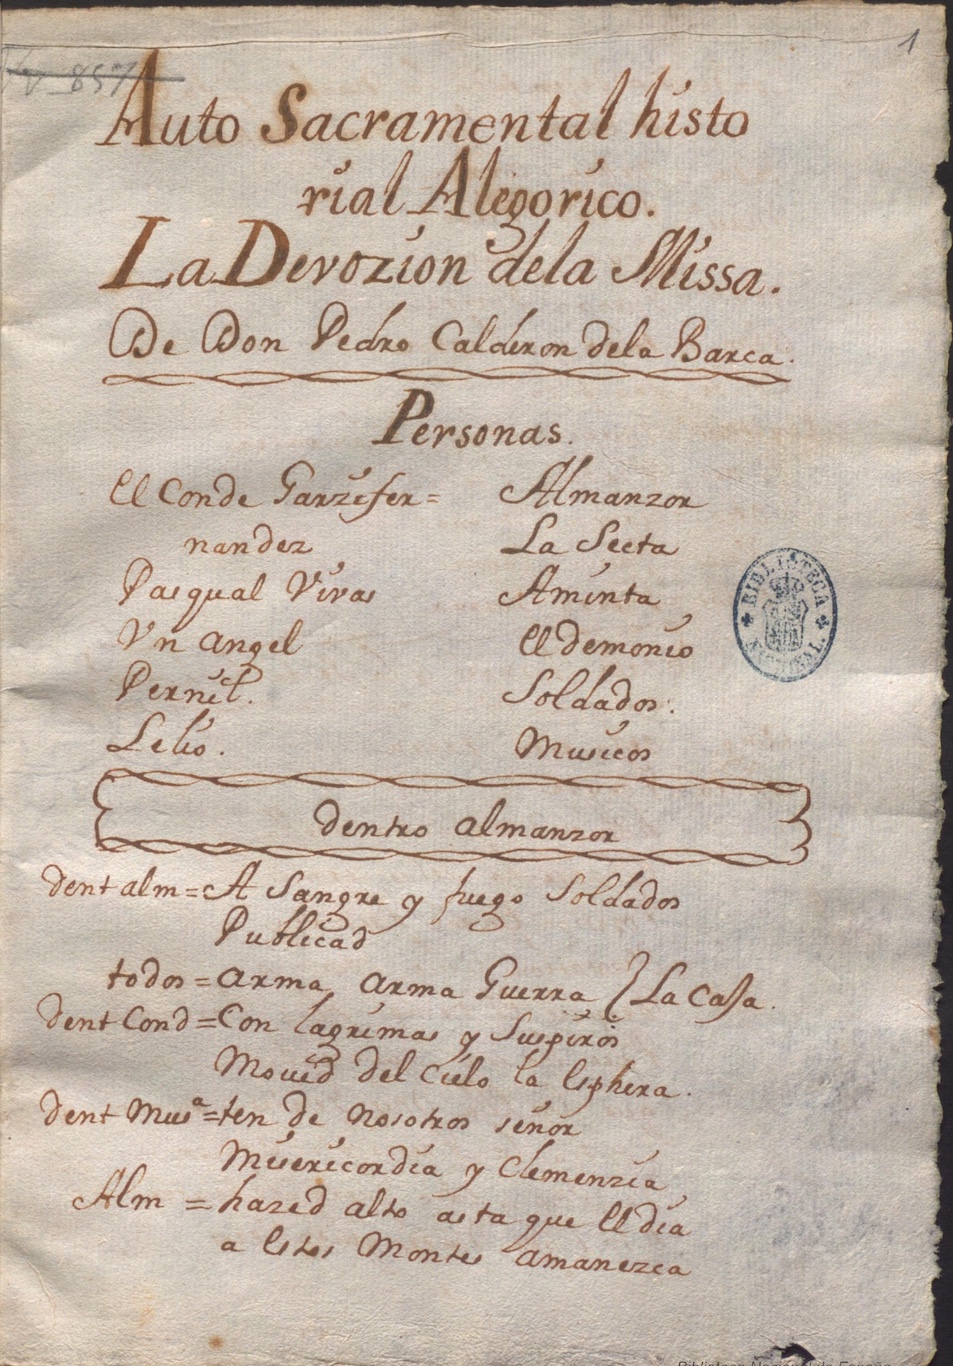 1
Auto Sacramental histo
rial Alegorico.
La Devozion dela Missa.
De Don Pedro Calderon dela Barca.
Personas.
El Conde Garzifer=
nandez
Pasqual Vivas
Vn angel
Pernil.
Lelio.
Almanzor
La Secta
Aminta
El demonio
Soldados.
Musicos
BIBLIOTECA
NACIONAL
dentro almanzor
dent alm = A Sangre y fuego Soldados
Publicad
todos = arma, arma Guerra } La Caja.
dent Cond = Con lagrimas y Suspiros
Moued del Cielo la Esphera.
dent Musª = ten de nosotros señor
Misericordia y Clemenzia
Alm = hazed alto asta que El dia
a Estos Montes amanezca